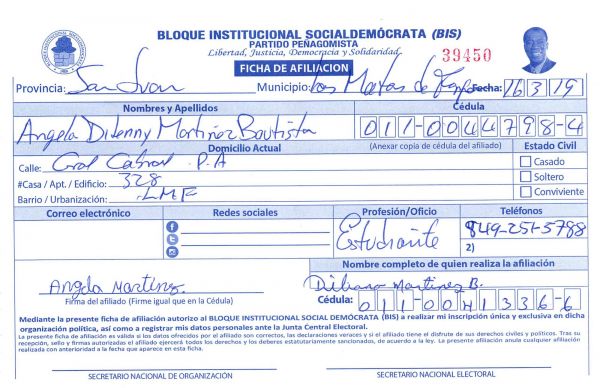 BLOQUE INSTITUCIONAL SOCIALDEMÓCRATA (BIS)
PARTIDO PEÑAGOMISTA
Libertad, Justicia, Democracia y Solidaridad
39450
FICHA DE AFILIACION
Provincia: San Juan Municipio: Las Matas de Fecha: 16/3/19
Nombres y Apellidos Cédula
Angela Dilenny Martinez Bautista 011-0044798-4
Domicilio Actual (Anexar copia de cédula del afiliado) Estado Civil
Calle: Gral Cabral P.A Casado
#Casa / Apt. / Edificio: 328 Soltero
Barrio / Urbanización: LMF Conviviente
Correo electrónico Redes sociales Profesión/Oficio Teléfonos
Estudiante 849-251-5788
2)
Nombre completo de quien realiza la afiliación
Angela Martinez Martinez B.
Firma del afiliado (Firme igual que en la Cédula) Cédula: 011-0041336-6
Mediante la presente ficha de afiliación autorizo al BLOQUE INSTITUCIONAL SOCIAL DEMÓCRATA (BIS) a realizar mi inscripción única y exclusiva en dicha
organización política, así como a registrar mis datos personales ante la Junta Central Electoral.
La presente ficha de afiliación es válida si los datos ofrecidos por el afiliado son correctos, las declaraciones veraces y si el afiliado tiene el disfrute de sus derechos civiles y políticos. Tras su
recepción, sello y firmas autorizadas el afiliado ejercerá todos los derechos y los deberes estatutariamente sancionados, de acuerdo a la ley. La presente afiliación anula cualquier afiliación
realizada con anterioridad a la fecha que aparece en esta ficha.
SECRETARIO NACIONAL DE ORGANIZACIÓN SECRETARIO NACIONAL ELECTORAL